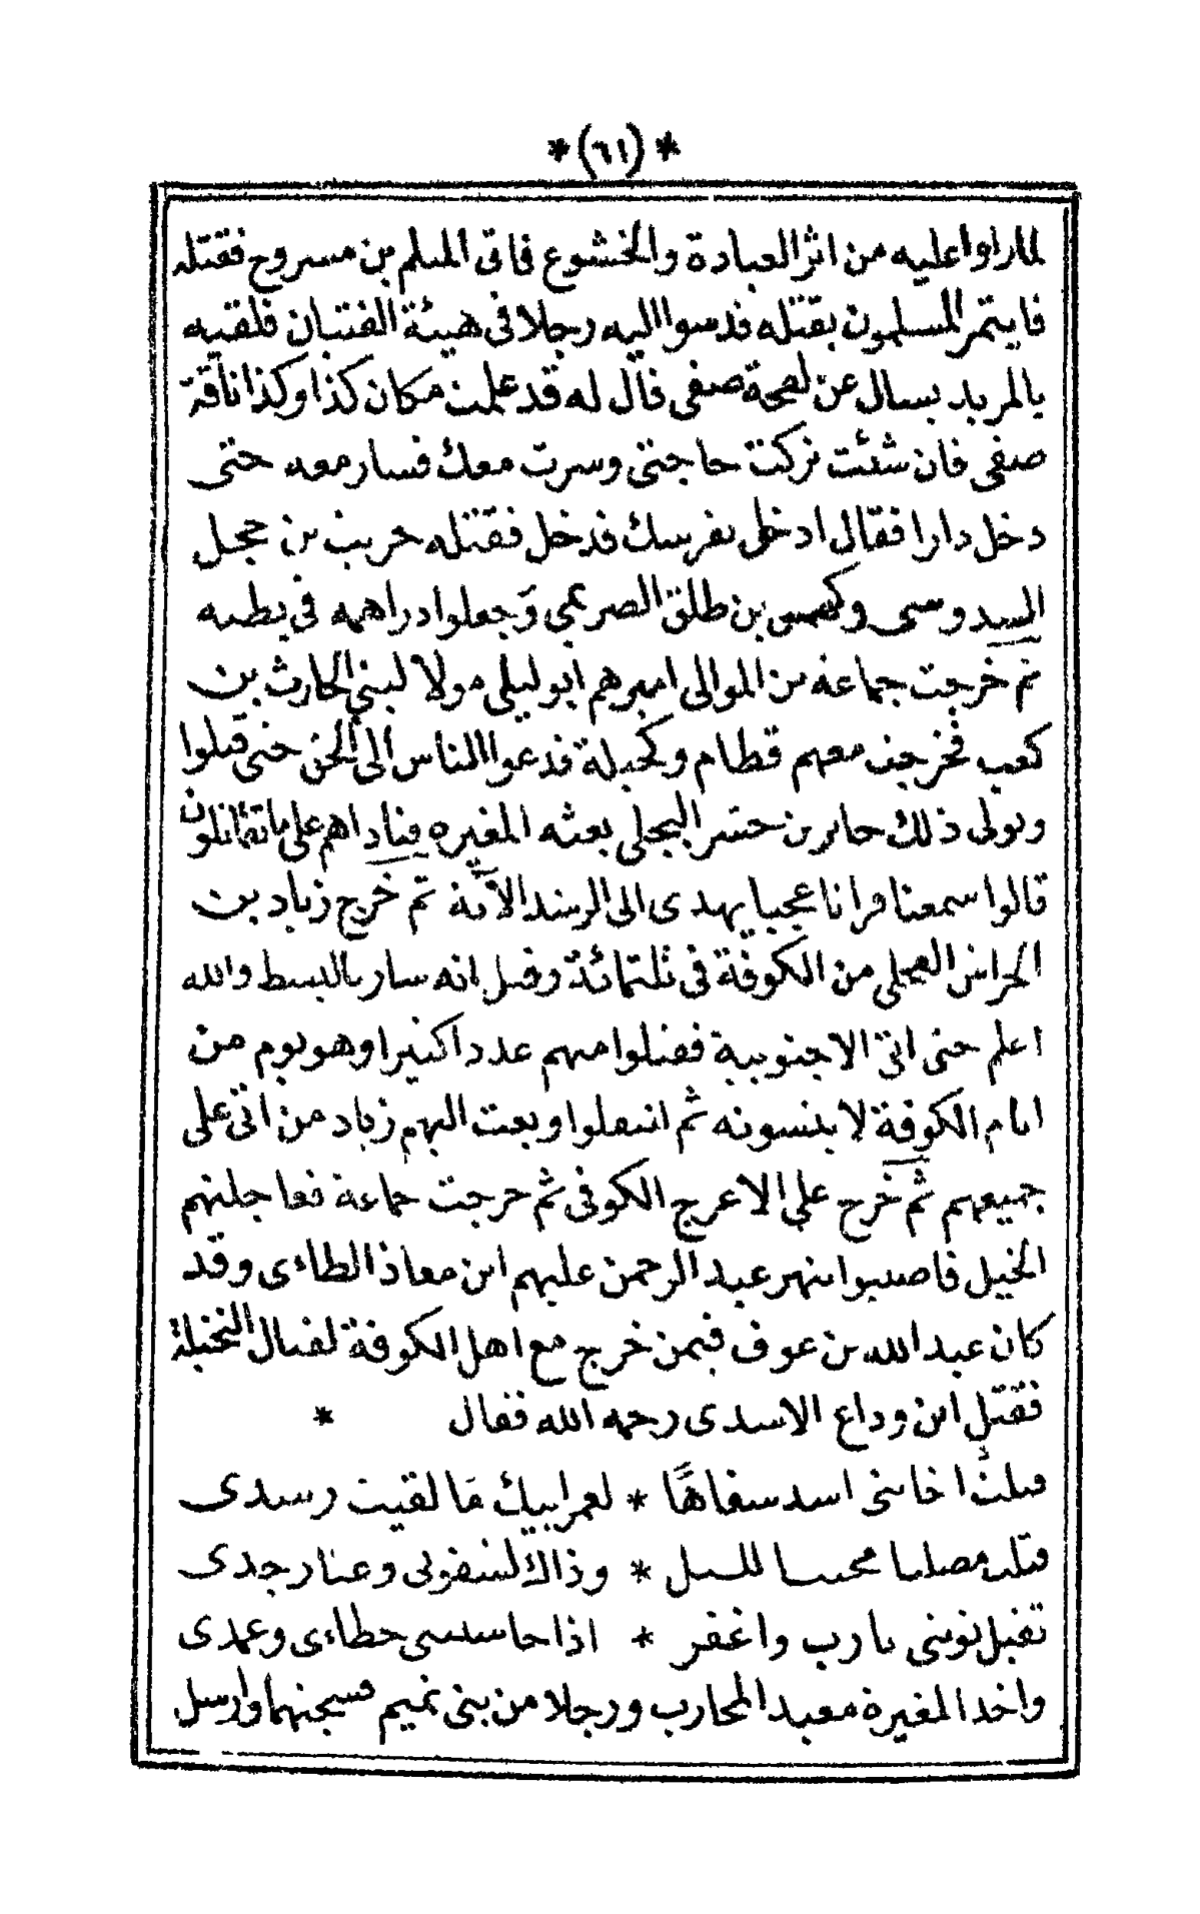 *(٦١)*
لما راوا عليه من اثر العبادة والخشوع فاتى المسلم بن مسروح فقتله
فايتمر المسلمون بقتله فدسوا اليه رجلا في هيئة الفتيان فلقيه
بالمربد يسال عن لقحة صفي فال له قد علمت مكان كذا وكذا ناقة
صفي فان شئت تركت حاجتي وسرت معك فسار معه حتى
دخل دارا فقال ادخل بفرسك فدخل فقتله حريث بن حجل
السدوسى وكهمس بن طلق الصريمي وجعلوا دراهمه في بطنه
ثم خرجت جماعة من الموالى اميرهم ابو ليلى مولا لبني الحارث بن
كعب فخرجت معهم قطام وكحيلة فدعوا الناس الى الحق حتى قتلوا
وتولى ذلك جابر بن البجلي بعثه المغيره فناداهم على ما تقاتلون
قالوا سمعنا قرانا عجبا يهدى الى الرشد الآية ثم خرج زياد بن
الخراش العجلي من الكوفة في ثلثمائة وقيل انه سار بالبسط والله
اعلم حتى اتى الاجنوبية فقتلوا منهم عددا كثيرا وهو يوم من
ايام الكوفة لا ينسونه ثم انتقلوا وبعث اليهم زياد من اتى على
جميعهم ثم خرج علي الاعرج الكوفى ثم خرجت جماعة فعاجلتهم
الخيل فاصيبوا بنهر عبد الرحمن عليهم ابن معاذ الطاءى وقد
كان عبد الله بن عوف فيمن خرج مع اهل الكوفة لقتال النخيلة
فقتل ابن وداع الاسدى رحمه الله فقال *
قتلت اخا بني اسد سفاها * لعمر ابيك ما لقيت رشدى
قتلت مصليا محييا لليل * وذاك لشقوتى وعثار جدى
تقبل توبتي يا رب واغفر * اذا حاسبتنى خطاءى وعمدى
واخذ المغيرة معبد المحارب ورجلا من بني تميم فسجنهما وارسل